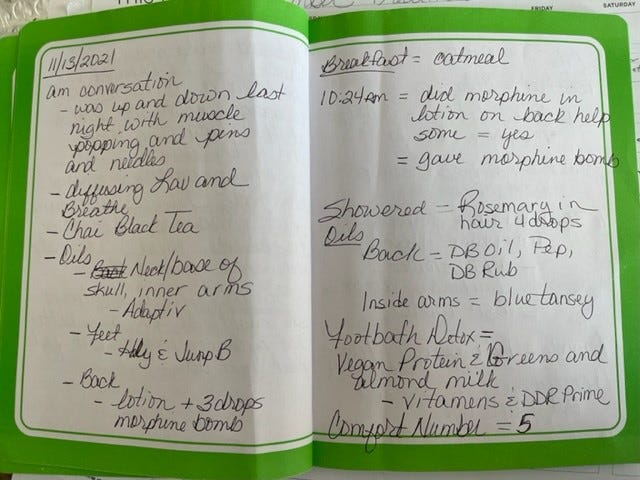 11/13/2021
am conversation
- was up and down last
night with muscle
popping and pins
and needles
- diffusing Lav and
Breathe
- Chai Black Tea
- Oils
- Neck/base of
skull, inner arms
- Adaptiv
- Feet
- & JunpB
- Back
- lotion + 3 drops
morphine bomb
Breakfast = oatmeal
10:24am = did morphine in
lotion on back help
some = yes
= gave morphine bomb
Showered - Rosemary in
hair 4 drops
Oils
Back = DB Oil, Pep,
DB Rub
Inside arms = blue tansey
Footbath Detox =
Vegan Protein & Greens and
almond milk
- vitamens & DDR Prime
Comfort Number = 5
FRIDAY
SATURDAY